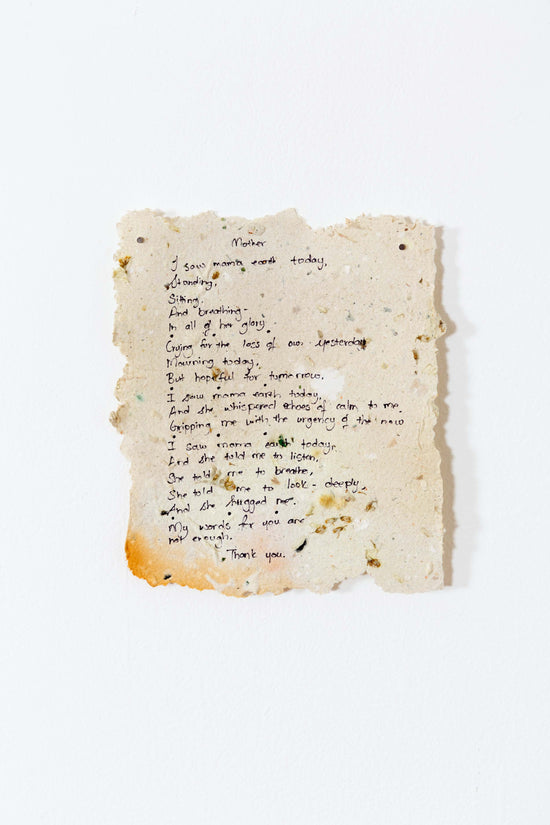 Mother
I saw mama earth today,
Standing,
Sitting,
And breathing -
In all of her glory.
Crying for the loss of our yesterday
Mourning today,
But hopeful for tomorrow.
I saw mama earth today,
And she whispered echoes of calm to me.
Gripping me with the urgency of the now
I saw mama earth today,
And she told me to listen,
She told me to breathe,
She told me to look - deeply
And she hugged me.
My words for you are
not enough.
Thank you.